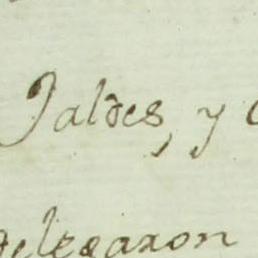 Jaldes, y
delegaron